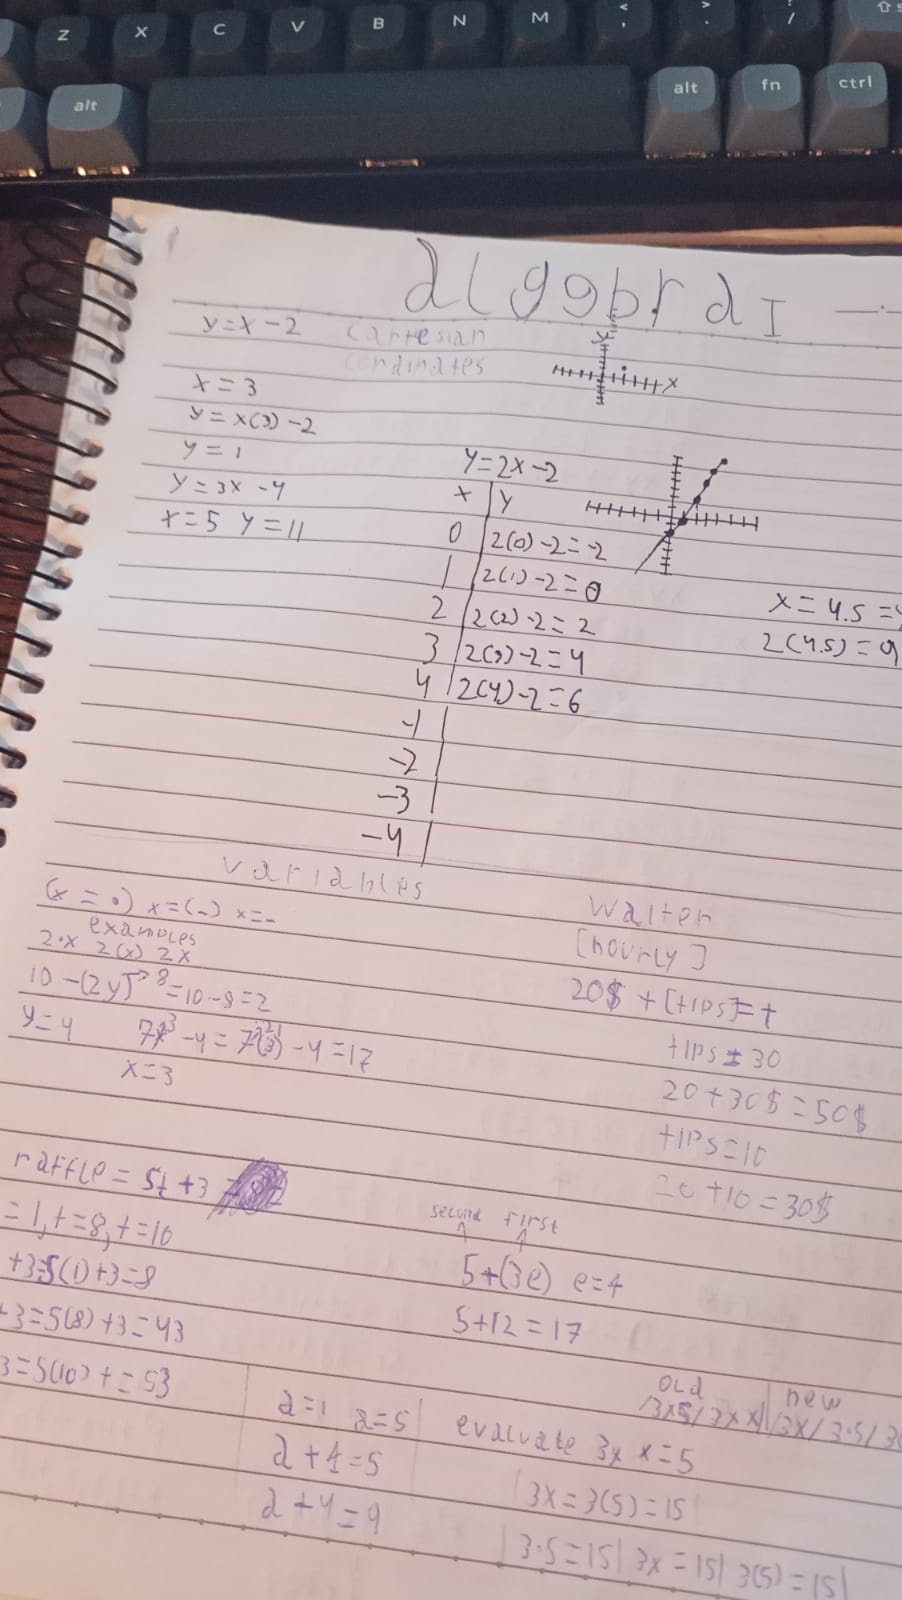 Z X C V B N M < , > . / ⇧
alt alt fn ctrl
algebra I
y=x-2 Cartesian
Cordinates
y
x
x=3
y=x(3)-2
y=1
y=3x-4
x=5 y=11
y=2x-2
x y
0 2(0)-2=-2
1 2(1)-2=0
2 2(2)-2=2
3 2(3)-2=4
4 2(4)-2=6
-1
-2
-3
-4
x=4.5=
2(4.5)=9
variables
(x=•) x=(-) x=-
examples
2·x 2(x) 2x
10-(2y)→8=10-8=2
y=4 7x³-4=7(3)-4=17
x=3
waiter
[hourly]
20$+[tips]=t
tips=30
20+30$=50$
tips=10
20+10=30$
raffle=5t+3
=1,t=8,t=10
+3=5(1)+3=8
+3=5(8)+3=43
3=5(10)+=53
second first
5+(3e) e=4
5+12=17
a=1 a=5
a+4=5
a+4=9
old new
|3x5/3xx||3x/3·5/3(
evaluate 3x x=5
|3x=3(5)=15|
|3·5=15|3x=15|3(5)=15|